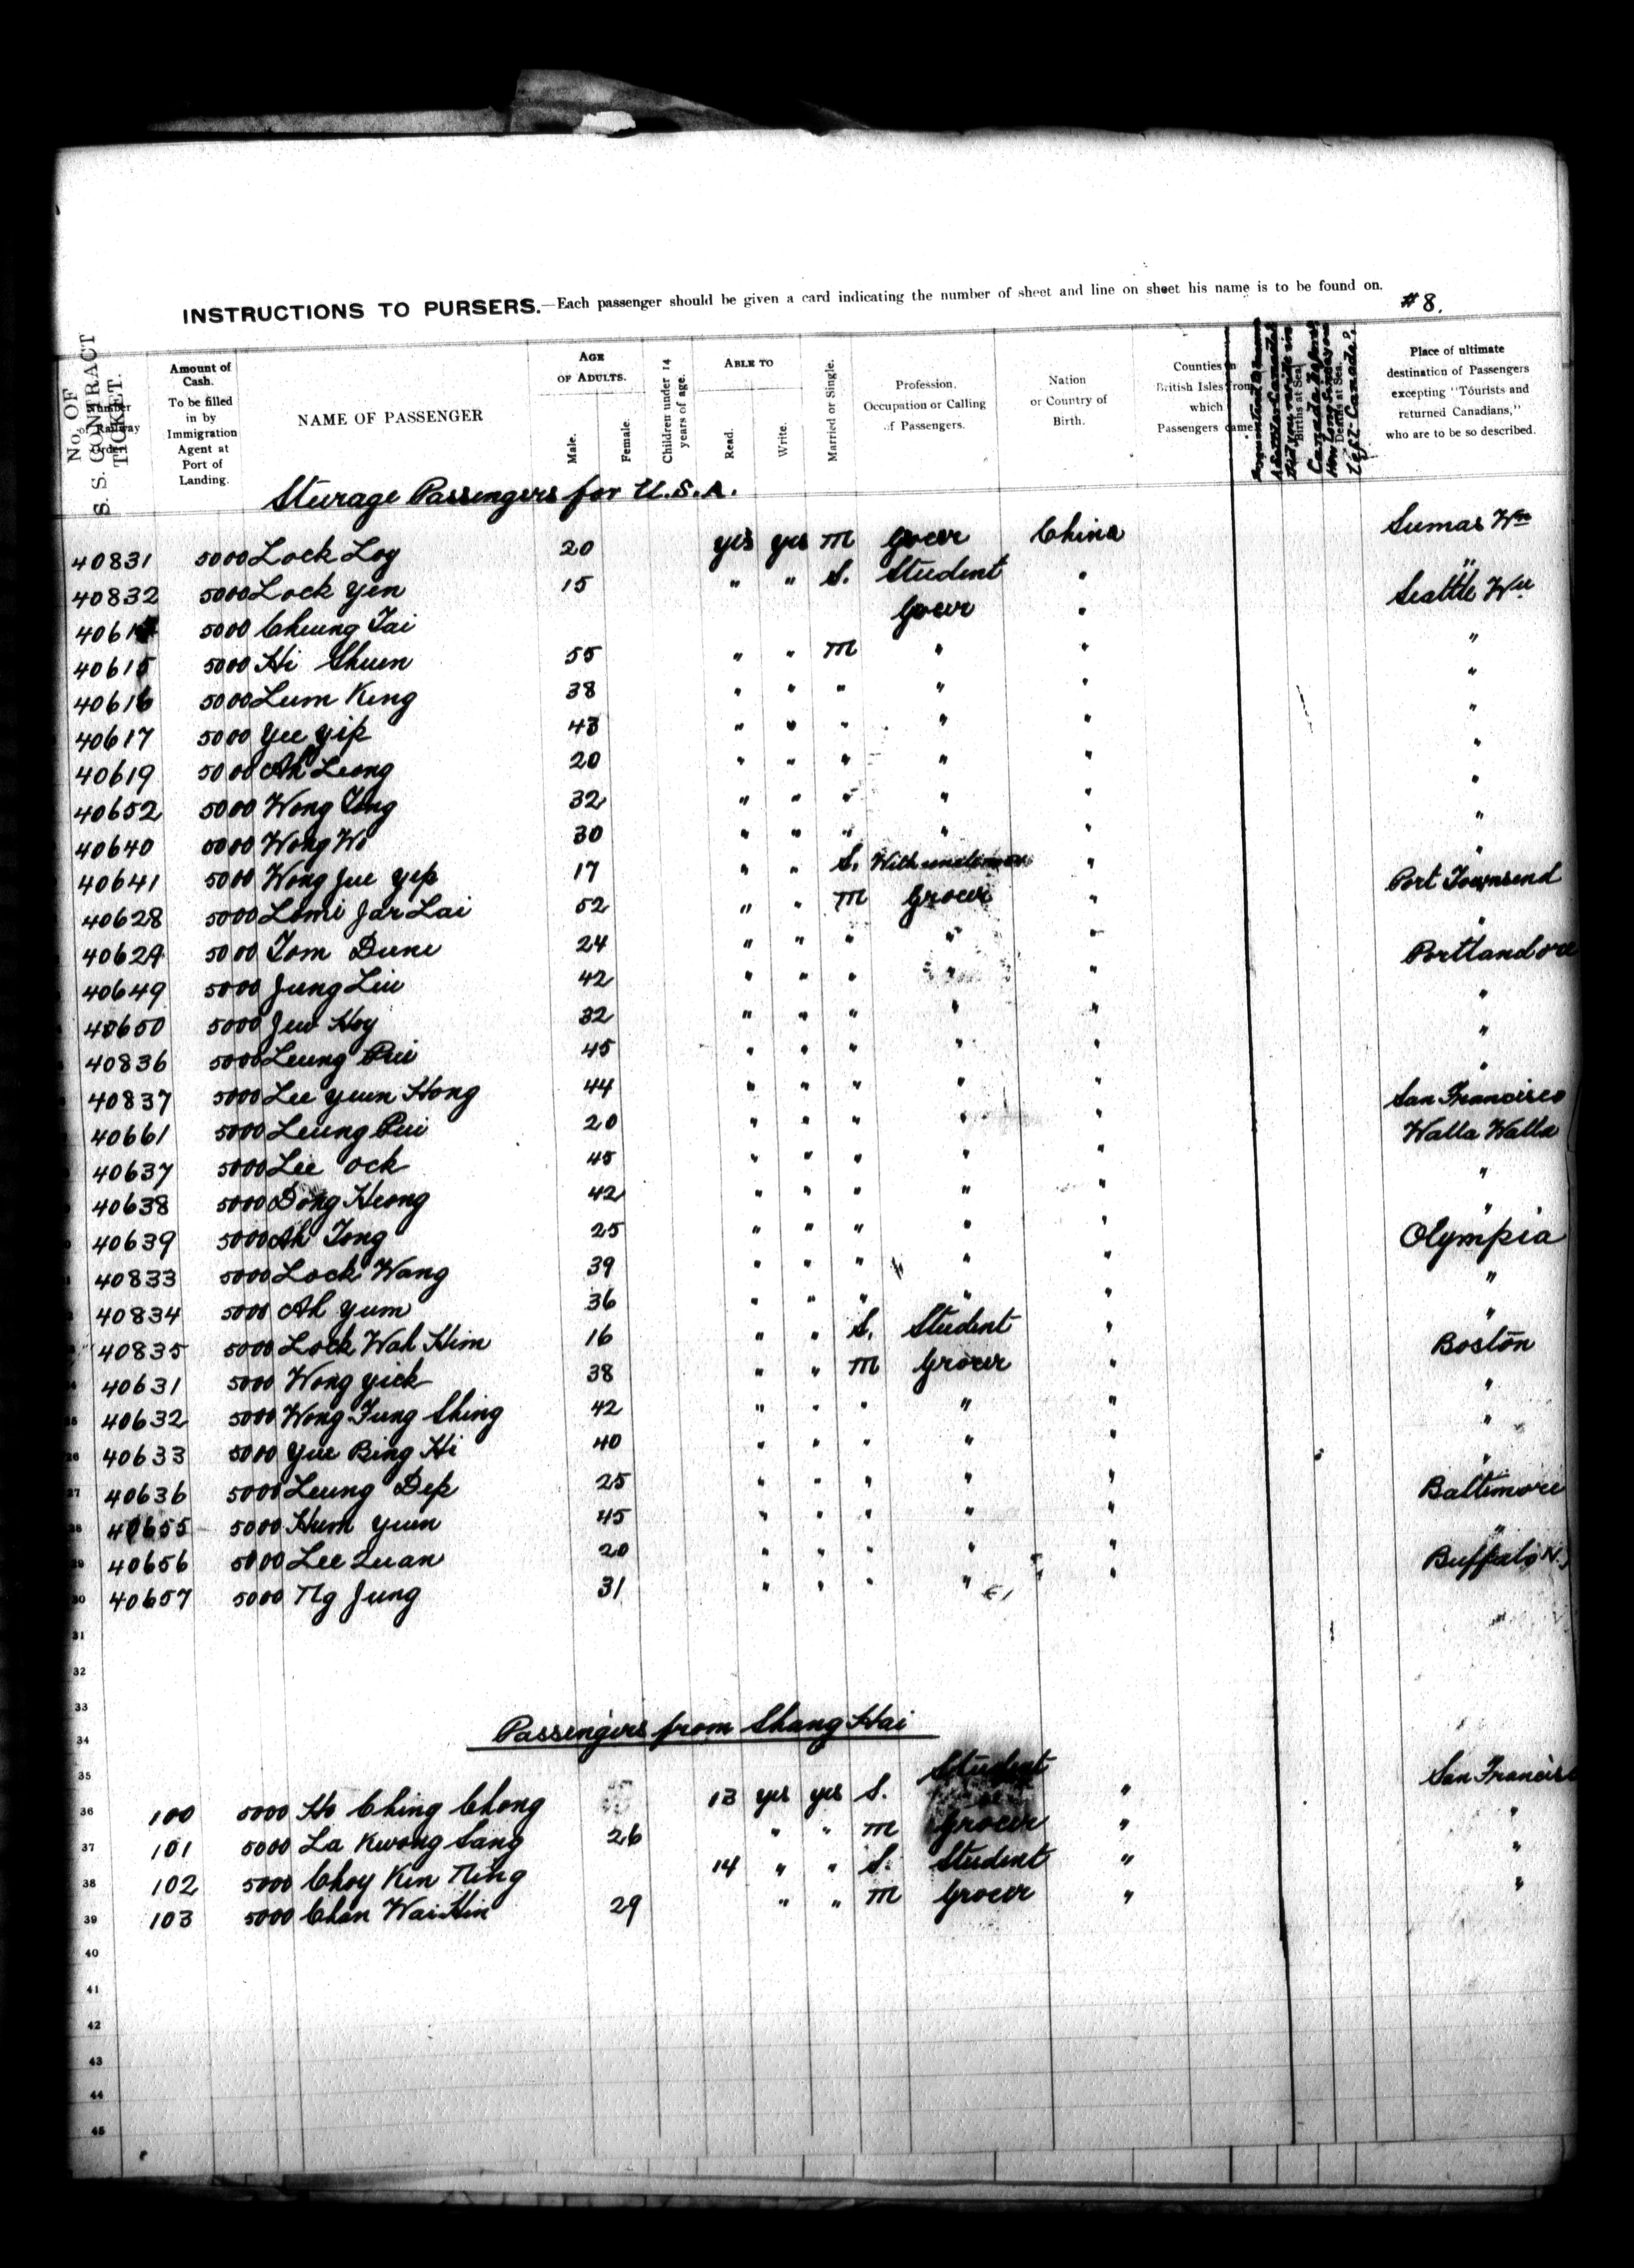 INSTRUCTIONS TO PURSERS.—Each passenger should be given a card indicating the number of sheet and line on sheet his name is to be found on.
#8.
No. OF S. S. CONTRACT TICKET.
Number of Railway Order
Amount of Cash. To be filled in by Immigration Agent at Port of Landing.
NAME OF PASSENGER
AGE OF ADULTS.
Male.
Female.
Children under 14 years of age.
ABLE TO
Read.
Write.
Married or Single.
Profession, Occupation or Calling of Passengers.
Nation or Country of Birth.
Counties in British Isles from which Passengers came.
Births at Sea
Deaths at Sea.
Place of ultimate destination of Passengers excepting "Tourists and returned Canadians," who are to be so described.
Sturage Passengers for U.S.A.
40831 5000 Lock Loy 20 yes yes M Grocer China Sumas Wn
40832 5000 Lock Yen 15 " " S. Student " "
4061 5000 Cheung Tai Grocer " Seattle Wn
40615 5000 Hi Shuen 55 " " M " " "
40616 5000 Lum King 38 " " " " " "
40617 5000 Yee Yip 43 " " " " " "
40619 5000 Ah Leong 20 " " " " " "
40652 5000 Wong Tong 32 " " " " " "
40640 5000 Wong Wo 30 " " " " " "
40641 5000 Wong Jue Yep 17 " " S. With " "
40628 5000 Lomi Jar Lai 52 " " M Grocer " Port Townsend
40629 5000 Tom Dune 24 " " " " " "
40649 5000 Jung Liu 42 " " " " " Portland ore
40650 5000 Jew Hoy 32 " " " " " "
40836 5000 Leung Pui 45 " " " " " "
40837 5000 Lee Yuen Hong 44 " " " " " "
40661 5000 Leung Pui 20 " " " " " San Francisco
40637 5000 Lee Ock 45 " " " " " Walla Walla
40638 5000 Dong Heong 42 " " " " " "
40639 5000 Ah Tong 25 " " " " " "
40833 5000 Lock Wang 39 " " " " " Olympia
40834 5000 Ah Yum 36 " " " " " "
40835 5000 Lock Wah Him 16 " " S. Student " "
40631 5000 Wong Yick 38 " " M Grocer " Boston
25 40632 5000 Wong Fung Shing 42 " " " " " "
26 40633 5000 Yue Bing Hi 40 " " " " " "
27 40636 5000 Leung Dep 25 " " " " " "
28 40655 5000 Hum Yuen 45 " " " " " Baltimore
29 40656 5000 Lee Quan 20 " " " " " "
30 40657 5000 Ng Jung 31 " " " " " Buffalo N.
31
32
33
34 Passengers from Shang Hai
35
36 100 5000 Ho Ching Chong 13 yes yes S. Student " San Francisc
37 101 5000 La Kwong Sang 26 " " M Grocer " "
38 102 5000 Choy Kin Ning 14 " " S. Student " "
39 103 5000 Chan Wai Hin 29 " " M Grocer " "
40
41
42
43
44
45